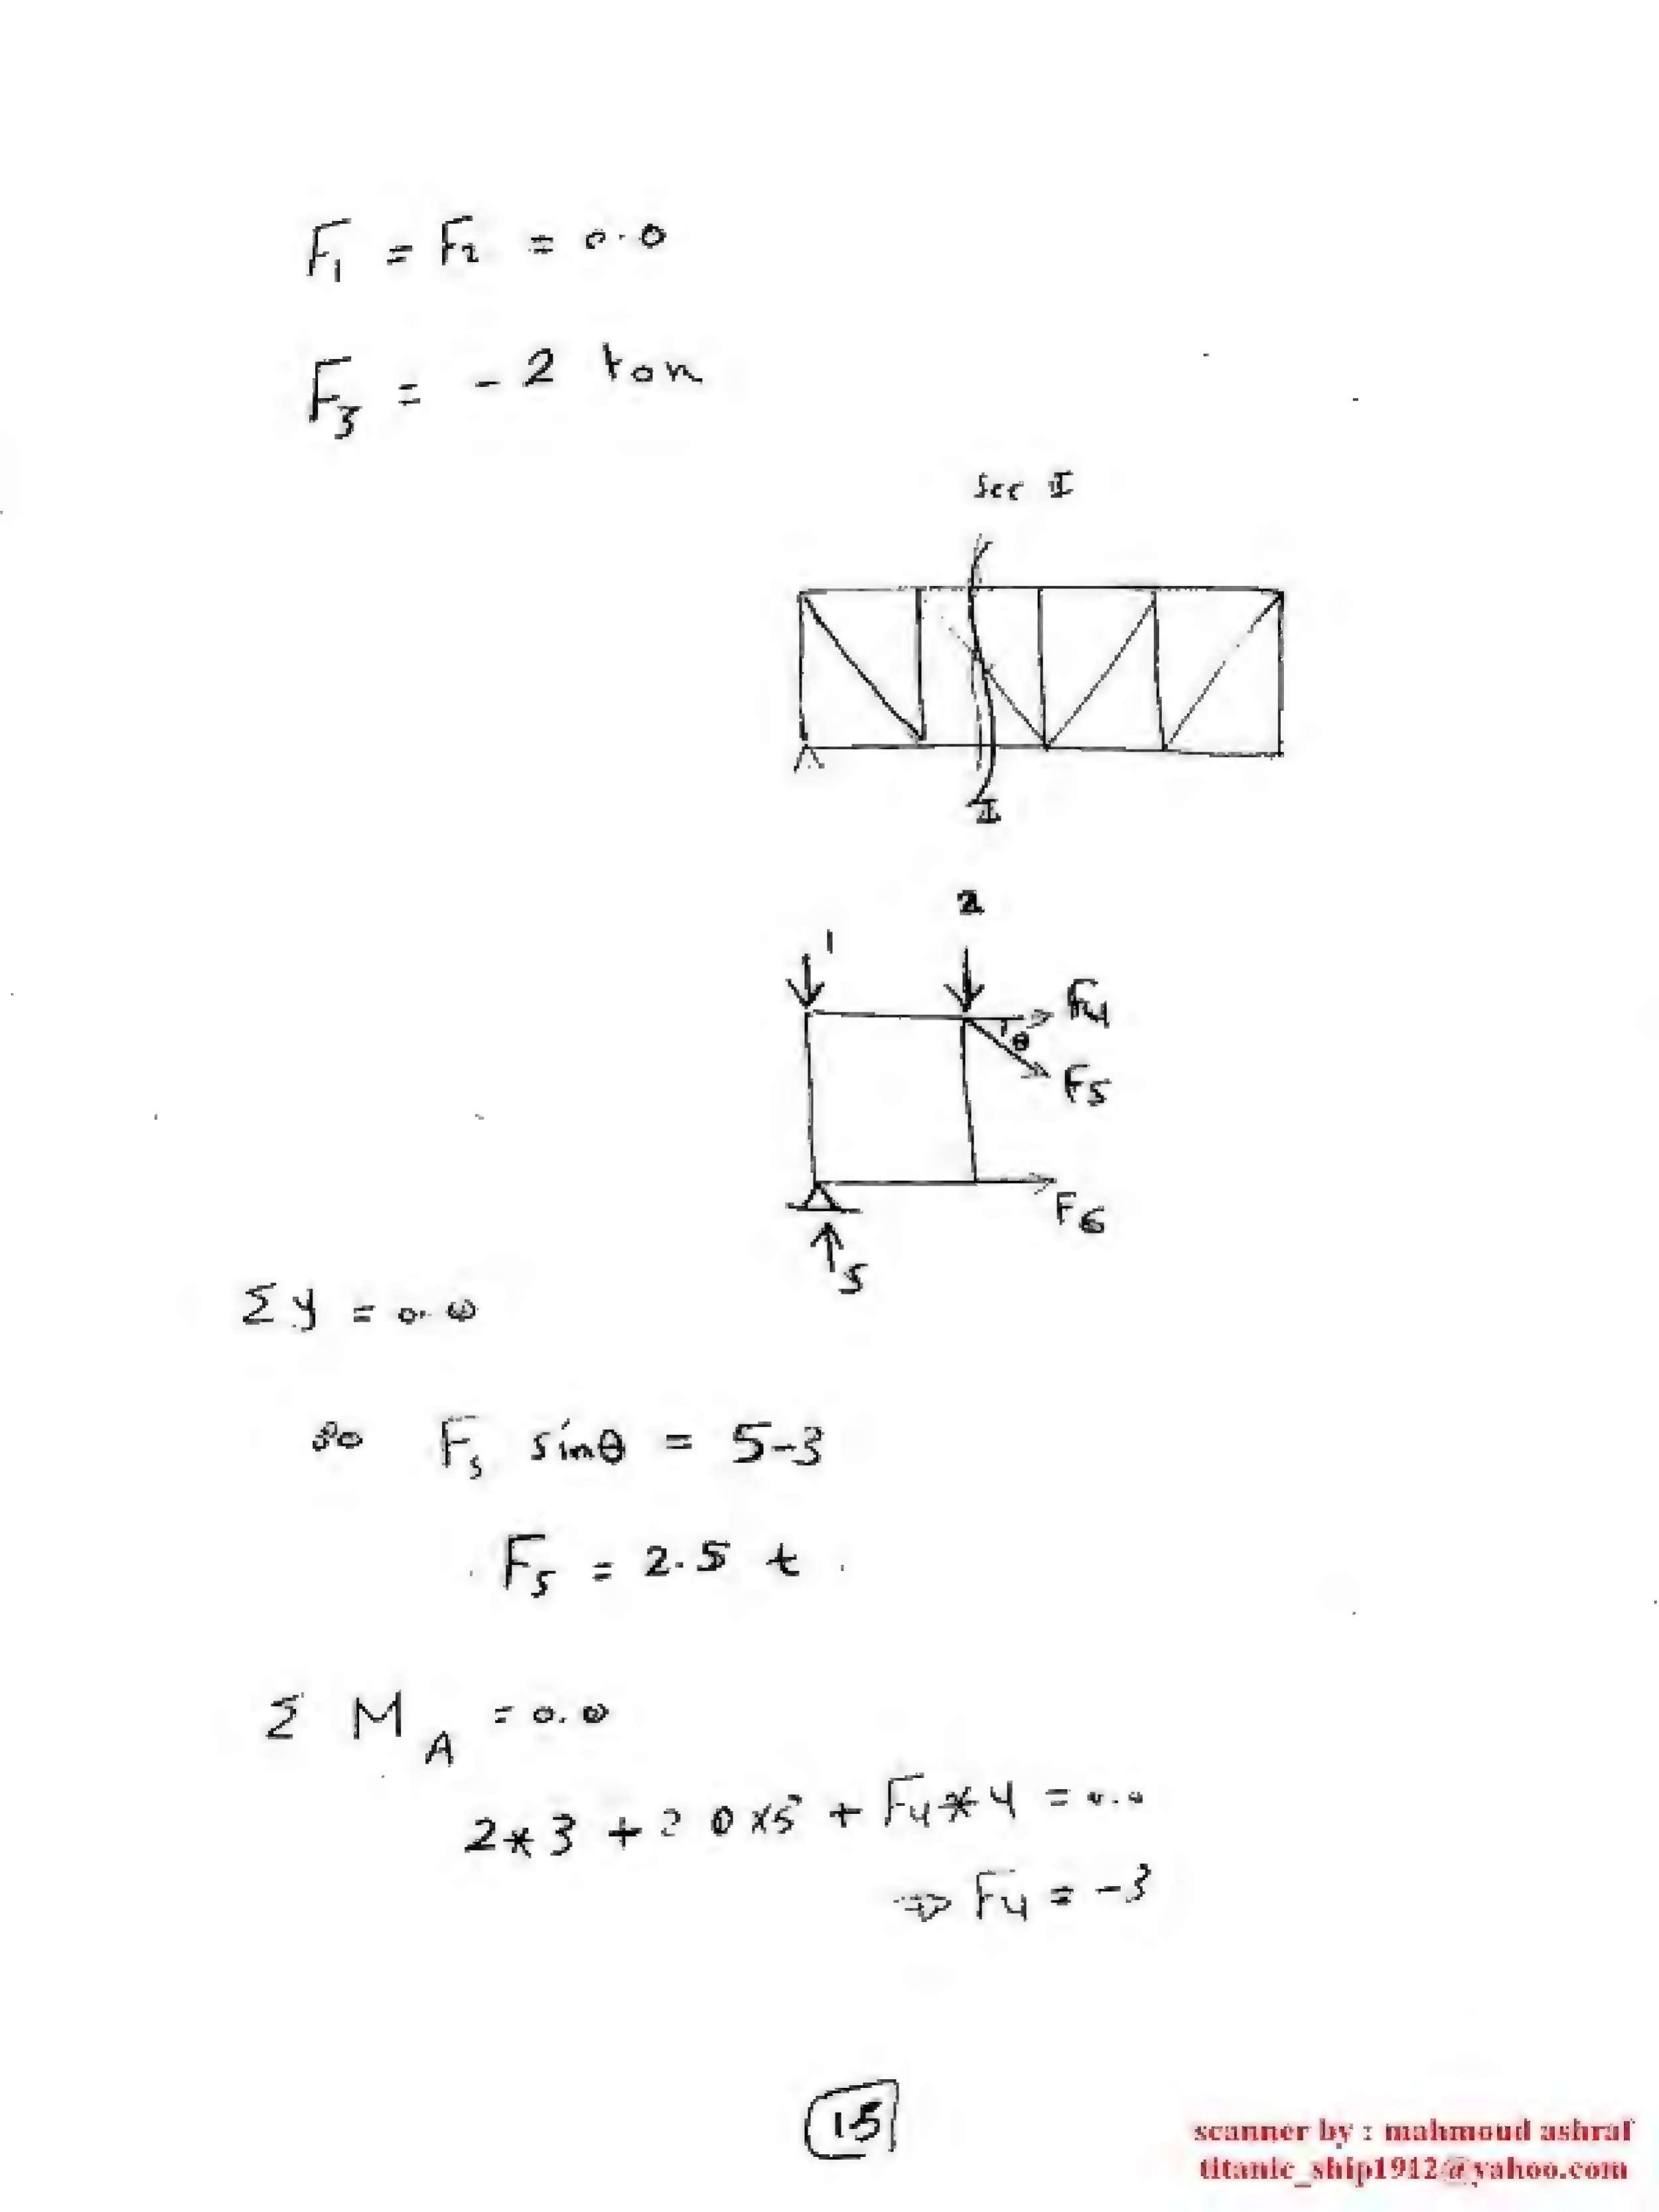 F1 = F2 = 0.0
F3 = -2 ton
Sec I
I
2
1
F4
θ
F5
F6
5
Σy = 0.0
so F5 sinθ = 5-3
F5 = 2.5 t
Σ M A = 0.0
2*3 + 2.0x5 + F4*4 = 0.0
⇒ F4 = -3
15
scanner by : mahmoud ashraf
titanic_ship1912@yahoo.com